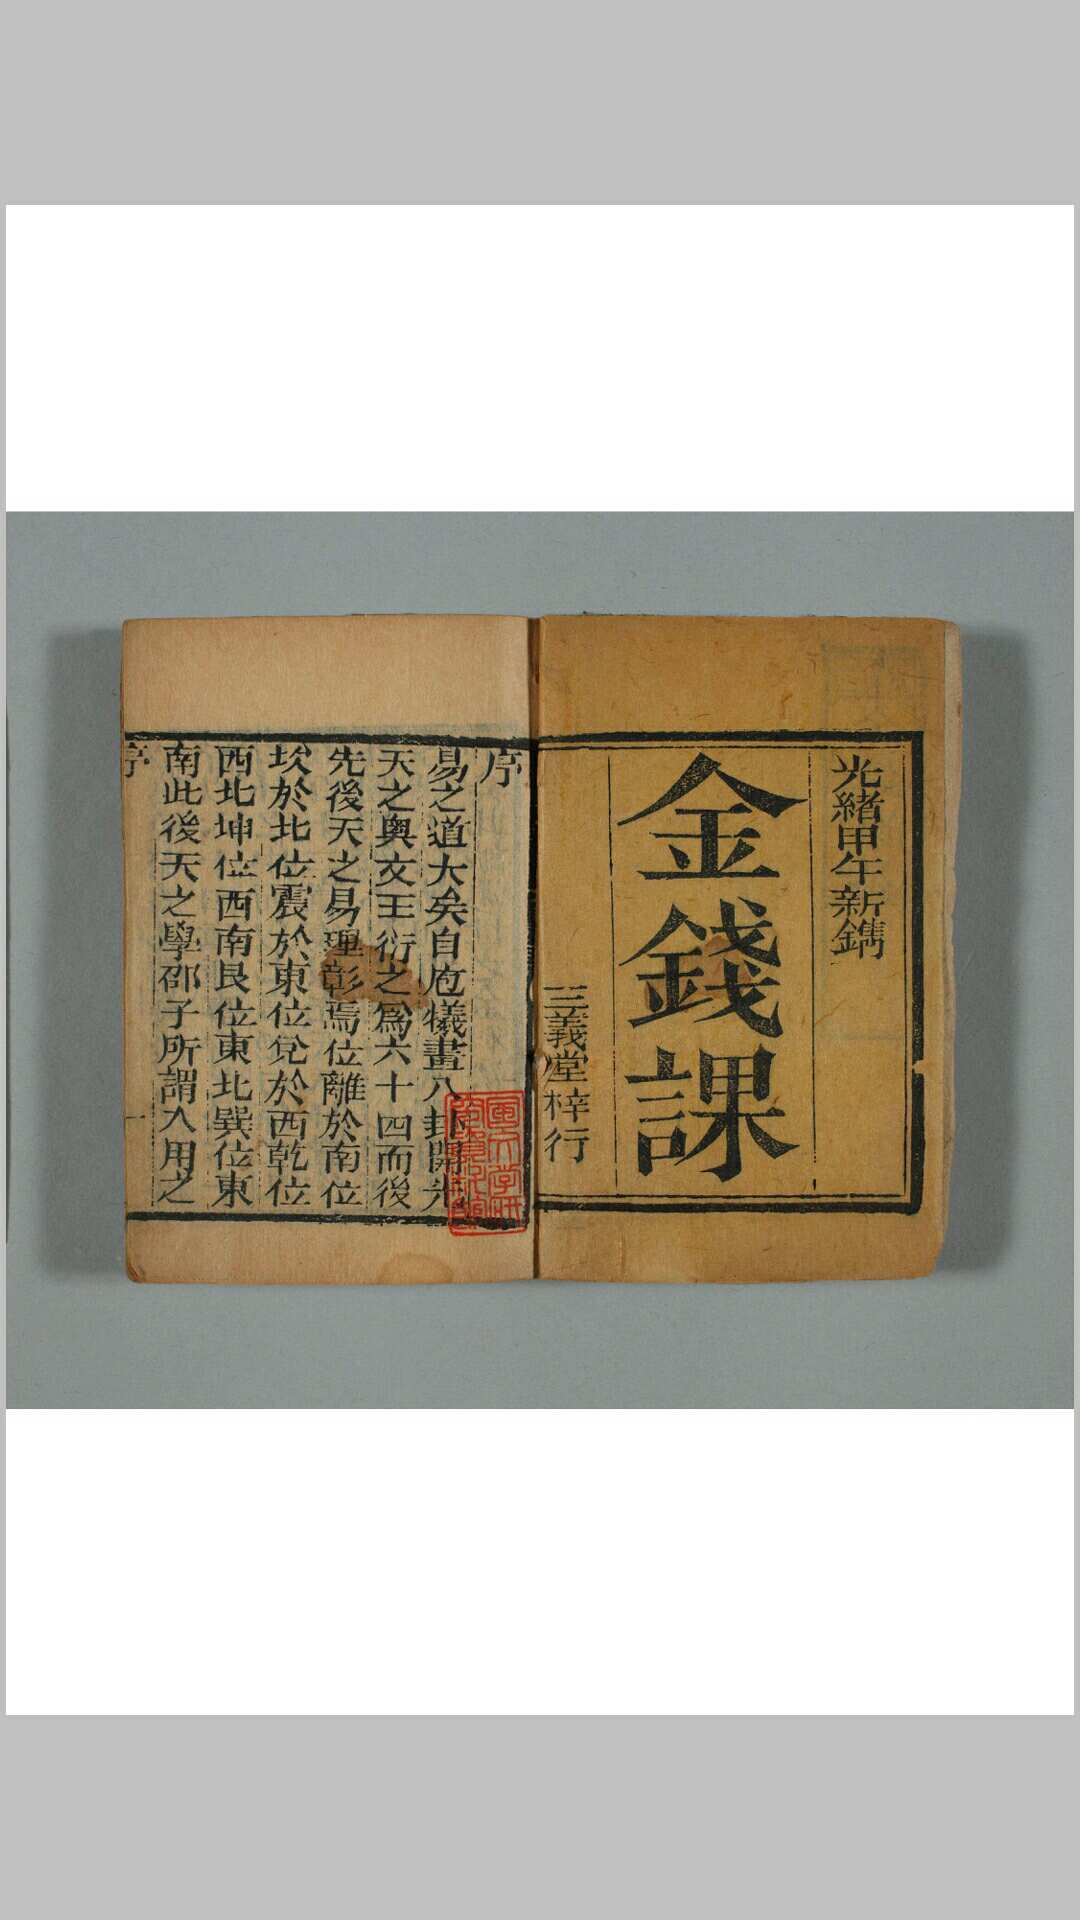 光緒甲午新鐫
金錢課
三義堂梓行
序
易之道大矣自庖犧畫八卦開先
天之奧文王衍之為六十四而後
先後天之易理彰焉位離於南位
坎於北位震於東位兌於西乾位
西北坤位西南艮位東北巽位東
南此後天之學邵子所謂入用之
序
一